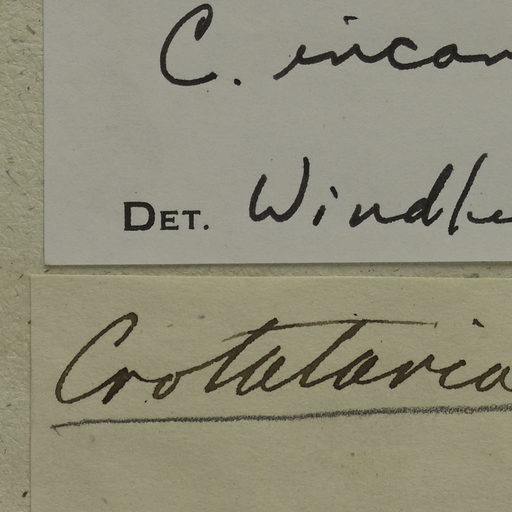 C. incan
DET. Windle
Crotataria